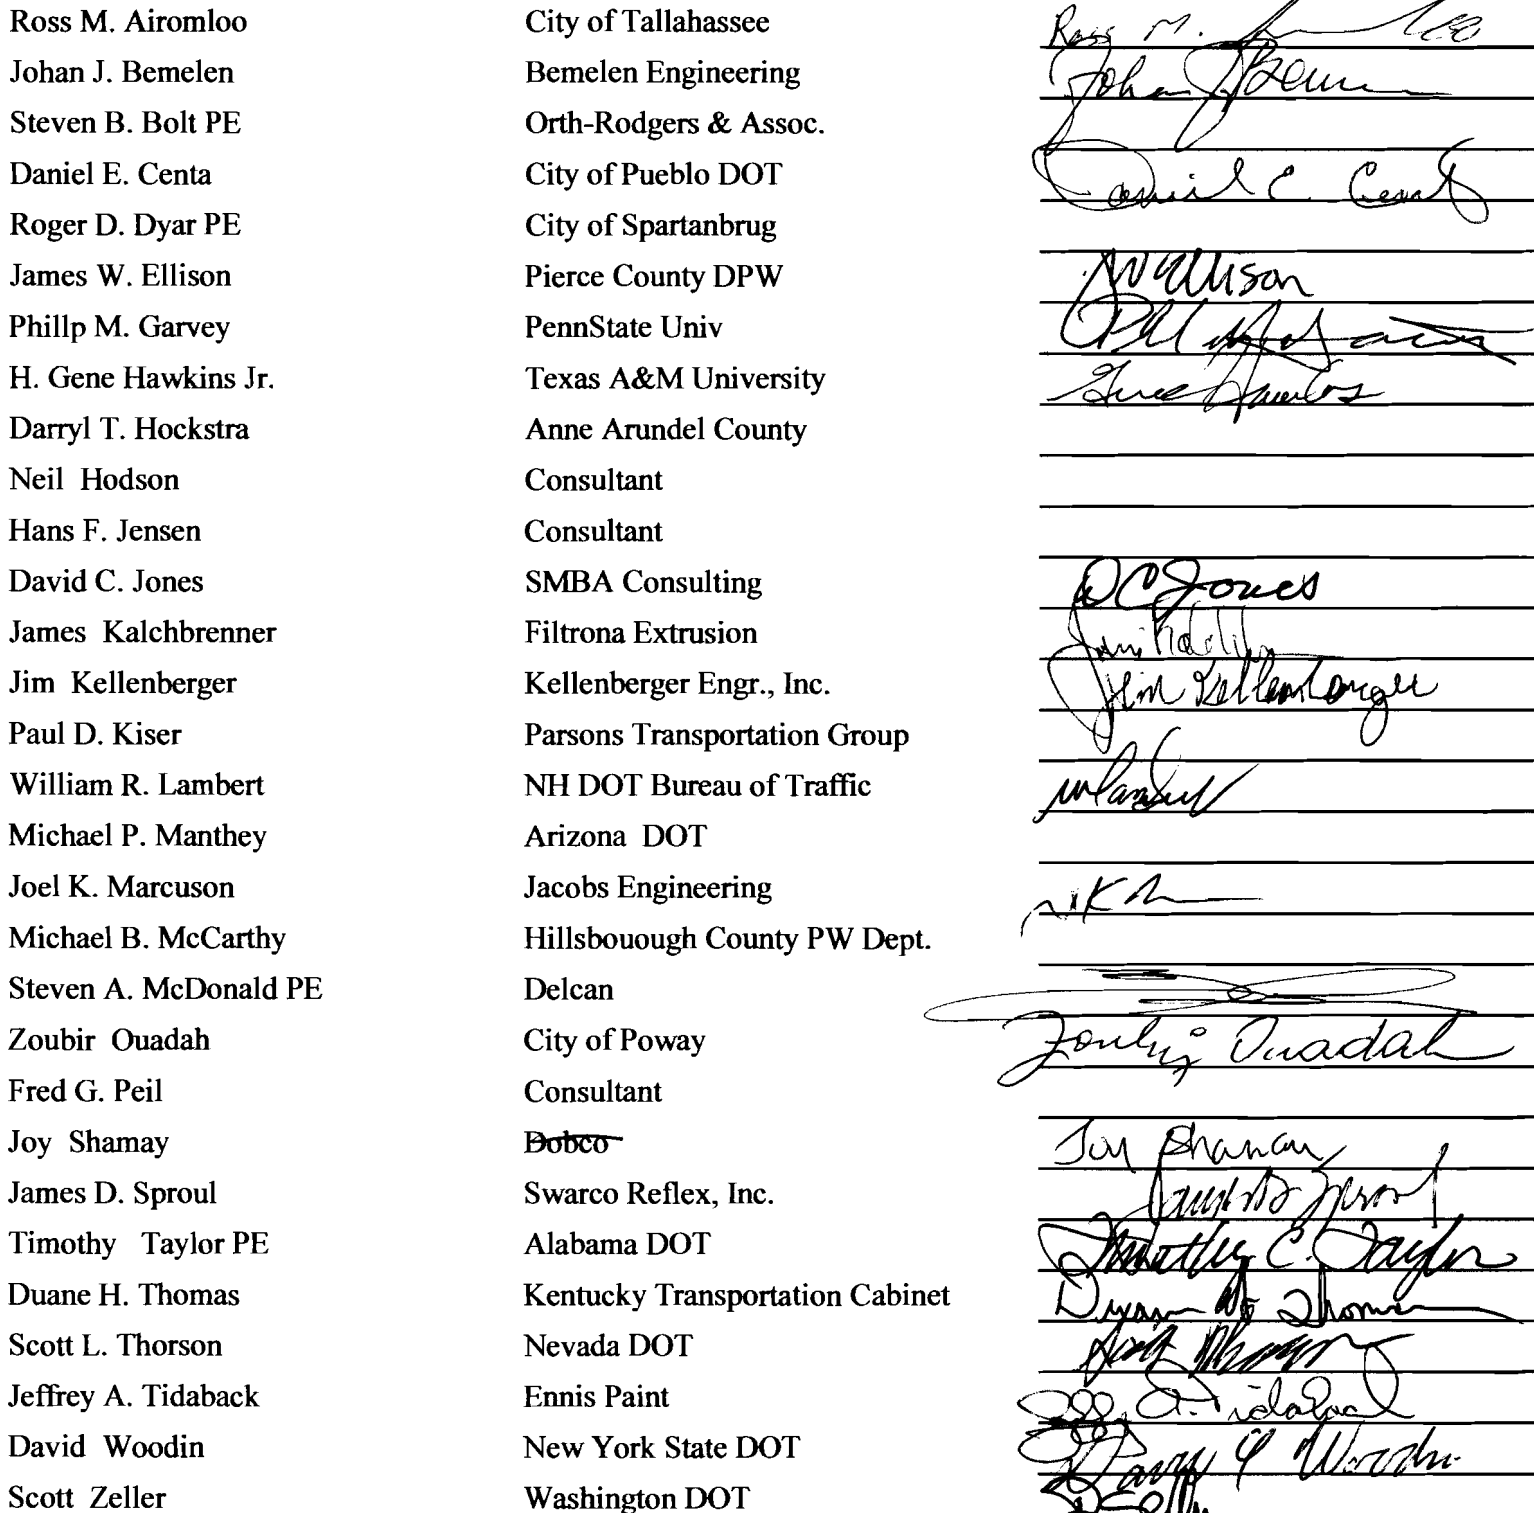 Ross M. Airomloo City of Tallahassee Ross M.
Johan J. Bemelen Bemelen Engineering Johan J Bem
Steven B. Bolt PE Orth-Rodgers & Assoc.
Daniel E. Centa City of Pueblo DOT Daniel E. Centa
Roger D. Dyar PE City of Spartanbrug
James W. Ellison Pierce County DPW JW Ellison
Phillp M. Garvey PennState Univ
H. Gene Hawkins Jr. Texas A&M University Gene Hawkins
Darryl T. Hockstra Anne Arundel County
Neil Hodson Consultant
Hans F. Jensen Consultant
David C. Jones SMBA Consulting DC Jones
James Kalchbrenner Filtrona Extrusion
Jim Kellenberger Kellenberger Engr., Inc. Jim Kellenberger
Paul D. Kiser Parsons Transportation Group
William R. Lambert NH DOT Bureau of Traffic
Michael P. Manthey Arizona DOT
Joel K. Marcuson Jacobs Engineering
Michael B. McCarthy Hillsbouough County PW Dept.
Steven A. McDonald PE Delcan
Zoubir Ouadah City of Poway Zoubir Ouadah
Fred G. Peil Consultant
Joy Shamay Dobco Joy Shamay
James D. Sproul Swarco Reflex, Inc. James D Sproul
Timothy Taylor PE Alabama DOT Timothy C. Taylor
Duane H. Thomas Kentucky Transportation Cabinet Duane H Thomas
Scott L. Thorson Nevada DOT Scott Thorson
Jeffrey A. Tidaback Ennis Paint A. Tidaback
David Woodin New York State DOT Woodin
Scott Zeller Washington DOT